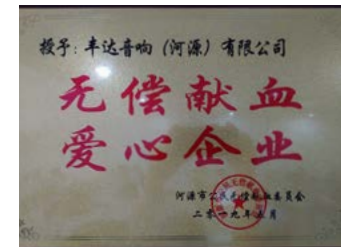 授予：丰达音响（河源）有限公司
无偿献血
爱心企业
河源市公民无偿献血委员会
二零一九年五月